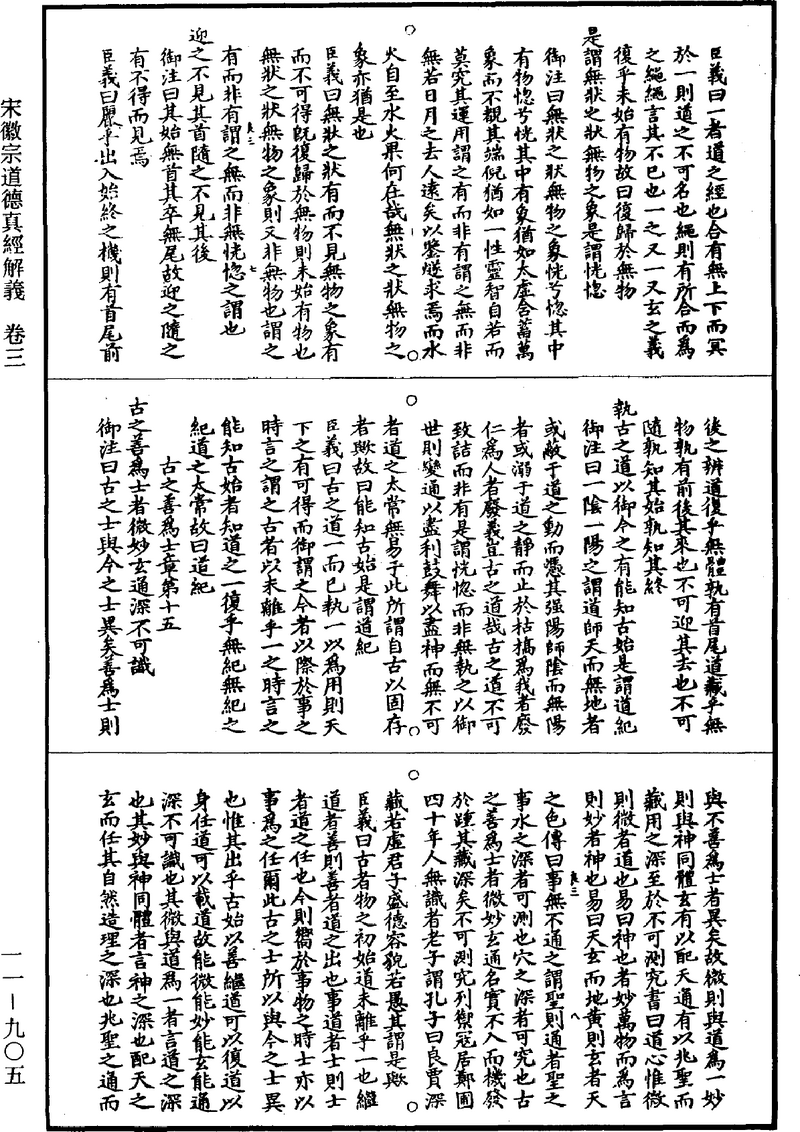 宋徽宗道德真經解義　卷三
臣義曰一者道之經也合有無上下而冥
於一則道之不可名也繩則有所合而爲
之繩繩言其不已也一之又一又玄之義
復乎未始有物故曰復歸於無物
是謂無狀之狀無物之象是謂恍惚
御注曰無狀之狀無物之象恍兮惚其中
有物惚兮恍其中有象猶如太虛含蓄萬
象而不覩其端倪猶如一性靈智自若而
莫究其運用謂之有而非有謂之無而非
無若日月之去人遠矣以鑒燧求焉而水
火自至水火果何在哉無狀之狀無物之
象亦猶是也
臣義曰無狀之狀有而不見無物之象有
而不可得旣復歸於無物則未始有物也
無狀之狀無物之象則又非無物也謂之
有而非有謂之無而非無恍惚之謂也
迎之不見其首隨之不見其後
御注曰其始無首其卒無尾故迎之隨之
有不得而見焉
臣義曰麗乎出入始終之機則有首尾前
後之辨道復乎無體孰有首尾道藏乎無
物孰有前後其來也不可迎其去也不可
隨孰知其始孰知其終
執古之道以御今之有能知古始是謂道紀
御注曰一陰一陽之謂道師天而無地者
或蔽于道之動而憑其强陽師陰而無陽
者或溺于道之靜而止於枯槁爲我者廢
仁爲人者廢義豈古之道哉古之道不可
致詰而非有是謂恍惚而非無執之以御
世則變通以盡利鼓舞以盡神而無不可
者道之太常無易于此所謂自古以固存
者歟故曰能知古始是謂道紀
臣義曰古之道一而已執一以爲用則天
下之有可得而御謂之今者以際於事之
時言之謂之古者以未離乎一之時言之
能知古始者知道之一復乎無紀無紀之
紀道之太常故曰道紀
古之善爲士章第十五
古之善爲士者微妙玄通深不可識
御注曰古之士與今之士異矣善爲士則
與不善爲士者異矣故微則與道爲一妙
則與神同體玄有以配天通有以兆聖而
藏用之深至於不可測究書曰道心惟微
則微者道也易曰神也者妙萬物而爲言
則妙者神也易曰天玄而地黄則玄者天
之色傳曰事無不通之謂聖則通者聖之
事水之深者可測也穴之深者可究也古
之善爲士者微妙玄通名實不入而機發
於踵其藏深矣不可測究列禦寇居鄭圃
四十年人無識者老子謂孔子曰良賈深
藏若虛君子盛德容貌若愚其謂是歟
臣義曰古者物之初始道未離乎一也繼
道者善則善者道之出也事道者士則士
者道之任也今則嚮於事物之時士亦以
事爲之任爾此古之士所以與今之士異
也惟其出乎古始以善繼道可以復道以
身任道可以載道故能微能妙能玄能通
深不可識也其微與道爲一者言道之深
也其妙與神同體者言神之深也配天之
玄而任其自然造理之深也兆聖之通而
一一—九〇五